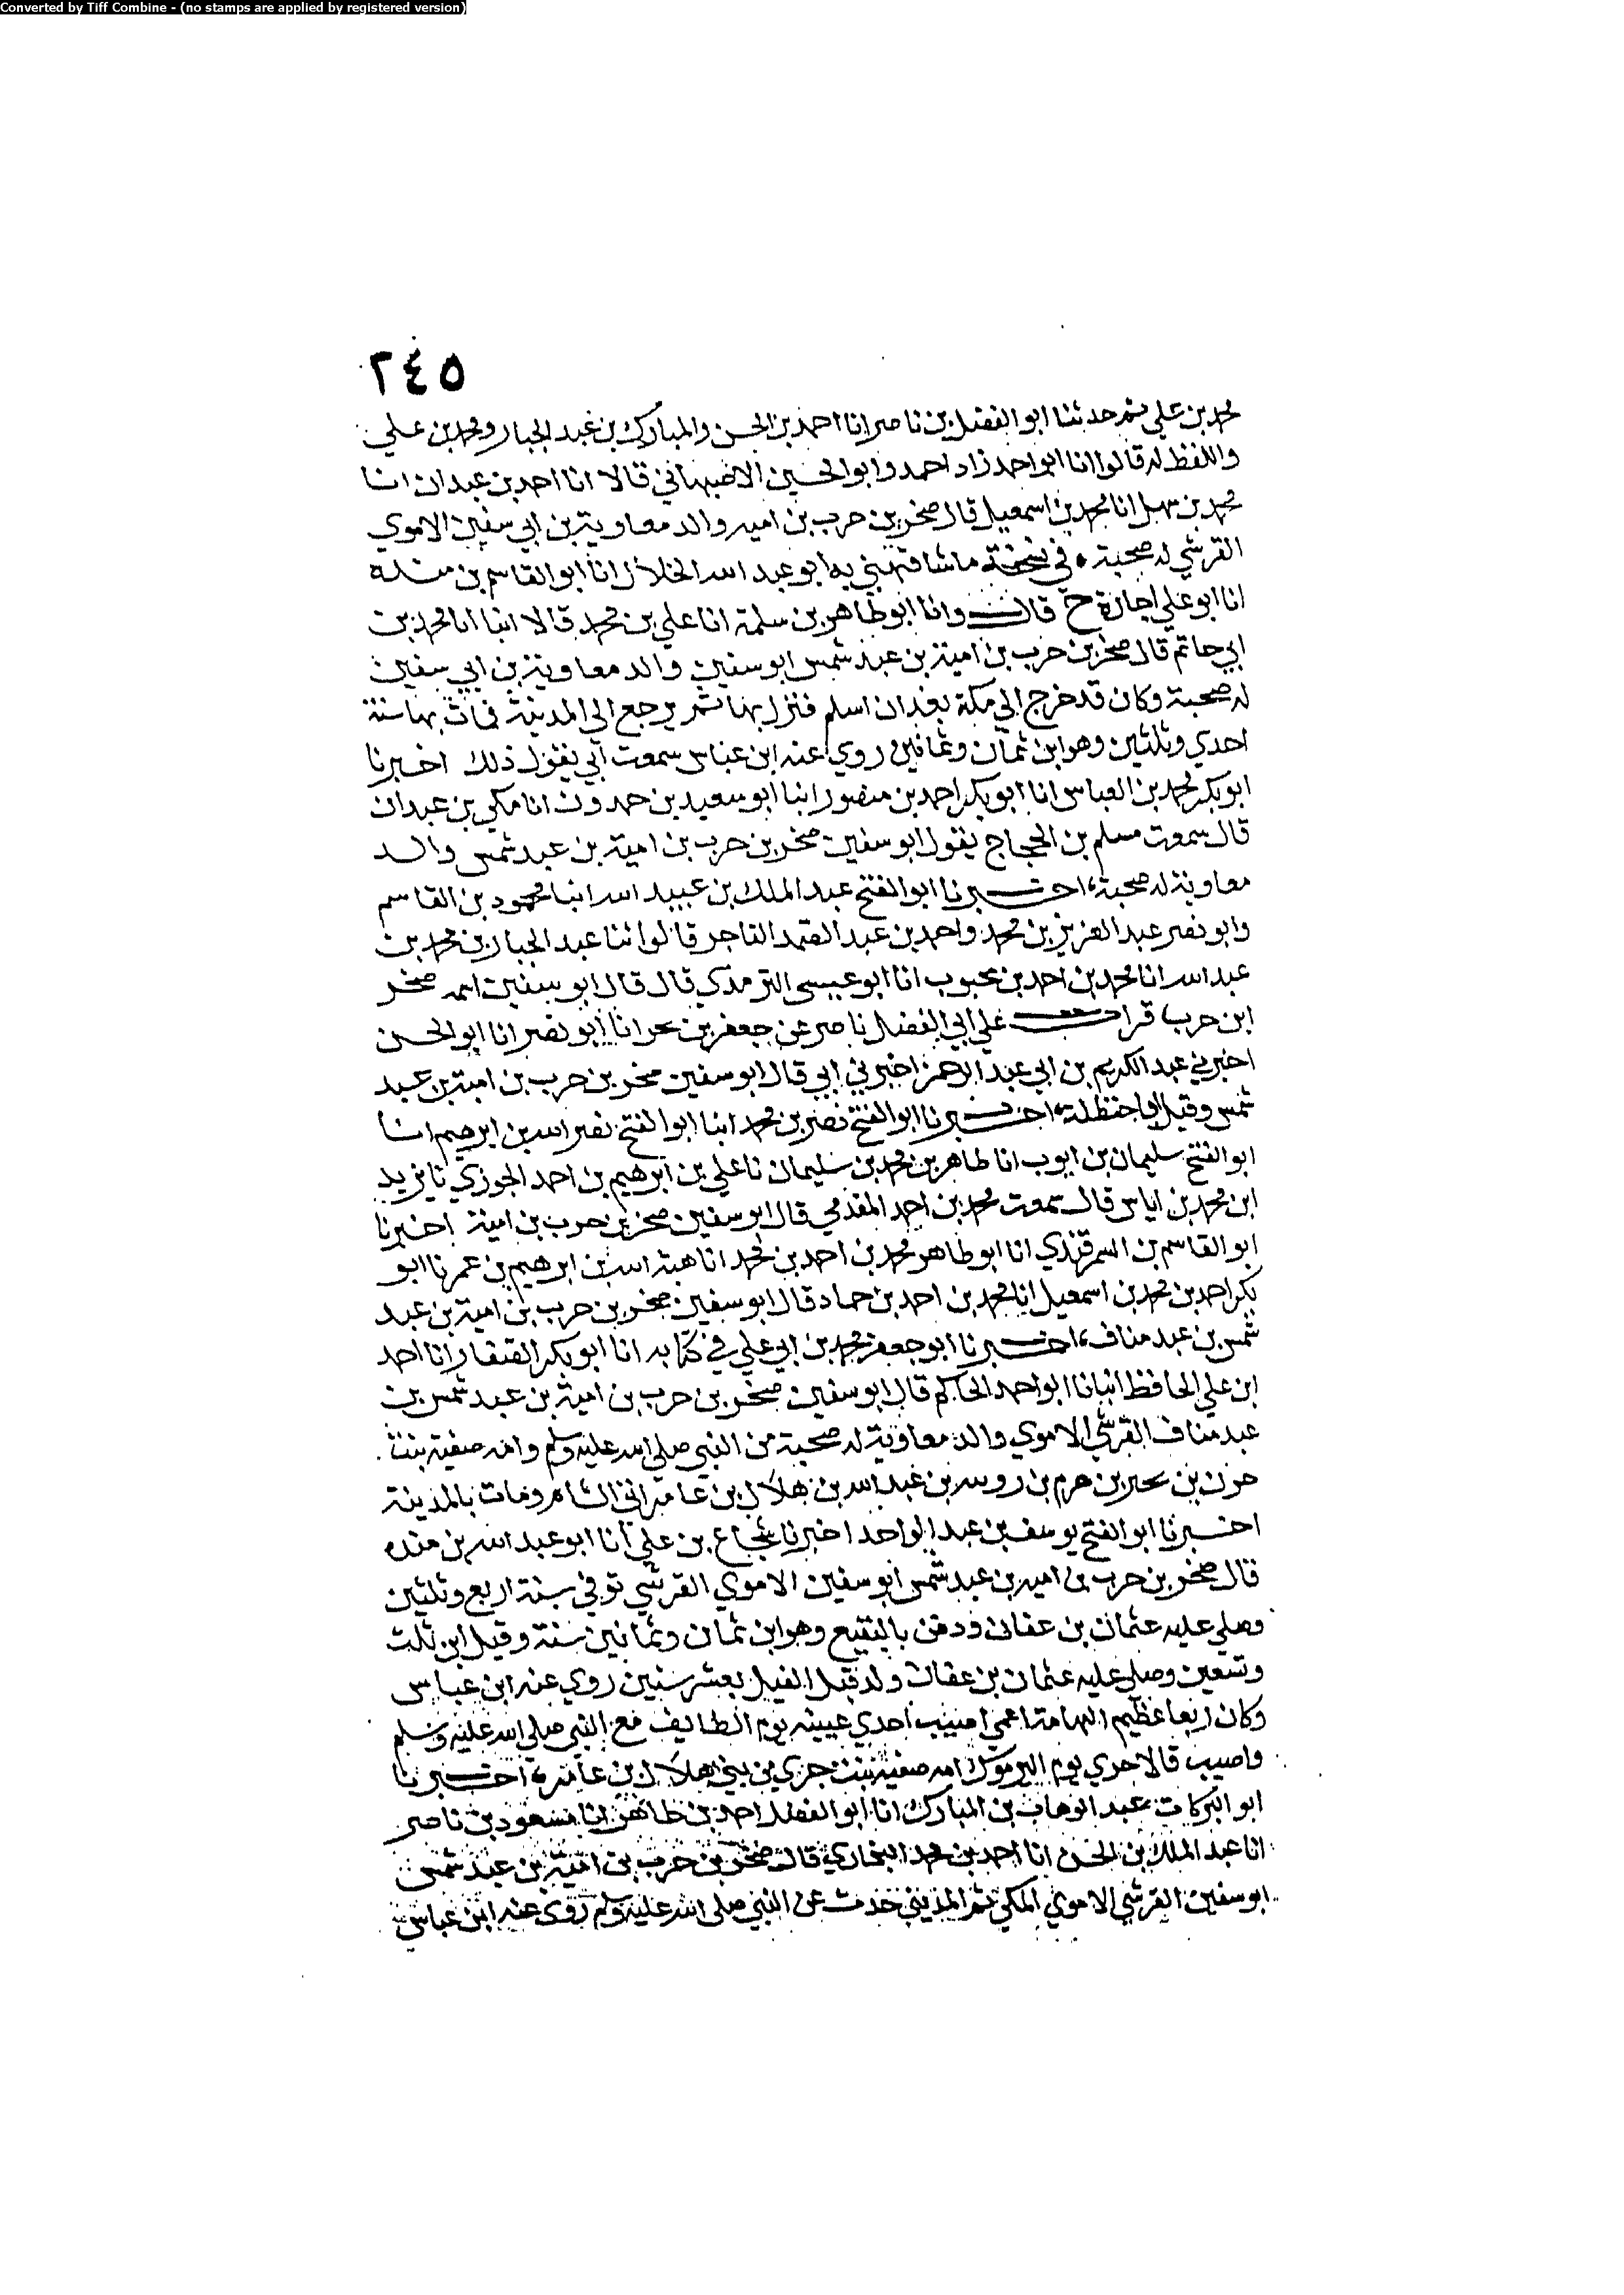 Converted by Tiff Combine - (no stamps are applied by registered version)
٢٤٥
محمد بن علي ثم حدثنا ابو الفضل بن ناصر انا احمد بن الحسن والمبارك بن عبد الجبار ومحمد بن علي
واللفظ له قالوا انا ابو احمد زاد احمد وابو الحسين الاصبهاني قالا انا احمد بن عبدان انا
محمد بن سهل انا محمد بن اسمعيل قال صخر بن حرب بن اميه والد معاوية بن ابي سفين الاموي
القرشي له صحبة في نسخة ما شافهني به ابو عبد الله الخلال انا ابو القاسم بن منده
انا ابو علي اجازة ح قال وانا ابو طاهر بن سلمة انا علي بن محمد قالا انبا انا محمد بن
ابي حاتم قال صخر بن حرب بن امية بن عبد شمس ابو سفين والد معاوية بن ابي سفين
له صحبة وكان قد خرج الي مكة بعد ان اسلم فنزل بها ثم رجع الي المدينة فمات بها سنة
احدي وثلثين وهو ابن ثمان وثمانين روي عنه ابن عباس سمعت ابي يقول ذلك اخبرنا
ابو بكر محمد بن العباس انا ابو بكر احمد بن منصور انبا ابو سعيد بن حمدون انا مكي بن عبدان
قال سمعت مسلم بن الحجاج يقول ابو سفين صخر بن حرب بن امية بن عبد شمس والد
معاوية له صحبة، اخبرنا ابو الفتح عبد الملك بن عبيد الله انبا محمود بن القاسم
وابو نصر عبد العزيز بن محمد واحمد بن عبد الصمد التاجر قالوا ثنا عبد الجبار بن محمد بن
عبد الله انا محمد بن احمد بن محبوب انا ابو عيسى الترمذي قال قال ابو سفين اسمه صخر
ابن حرب قرات علي ابي الفضل ناصر عن جعفر بن انا ابو نصر انا ابو الحسن
اخبرني عبد الكريم بن ابي عبد الرحمن اخبرني ابي قال ابو سفين صخر بن حرب بن امية بن عبد
شمس وقيل ابا حنظلة، اخبرنا ابو الفتح نصر بن محمد انبا ابو الفتح نصر الله بن ابرهيم انا
ابو الفتح سليمان بن ايوب انا طاهر بن محمد بن سليمان نا علي بن ابرهيم بن احمد الجوزي نا يزيد
ابن محمد بن اياس قال سمعت محمد بن احمد المقدمي قال ابو سفين صخر بن حرب بن امية اخبرنا
ابو القاسم بن السمرقندي انا ابو طاهر محمد بن احمد بن محمد انا هبة الله بن ابرهيم بن عمر نا ابو
بكر احمد بن محمد بن اسمعيل انا محمد بن احمد بن حماد قال ابو سفين صخر بن حرب بن امية بن عبد
شمس بن عبد مناف، اخبرنا ابو جعفر محمد بن ابي علي في كتابه انا ابو بكر الصفار انا احمد
ابن علي الحافظ انبانا ابو احمد الحاكم قال ابو سفين صخر بن حرب بن امية بن عبد شمس بن
عبد مناف القرشي الاموي والد معاوية له صحبة من النبي صلي الله عليه وسلم وامه صفية بنت
حزن بن بن بن عبد الله بن هلال بن عامر اتى الشام ومات بالمدينة
اخبرنا ابو الفتح يوسف بن عبد الواحد اخبرنا شجاع بن علي انا ابو عبد الله بن منده
قال صخر بن حرب بن اميه بن عبد شمس ابو سفين الاموي القرشي توفي سنة اربع وثلثين
وصلي عليه عثمان بن عفان ودفن بالبقيع وهو ابن ثمان وثمانين سنة وقيل ابن ثلث
وتسعين وصلي عليه عثمان بن عفان ولد قبل الفيل بعشر سنين روي عنه ابن عباس
وكان ربعا عظيم الهامة اعمي اصيب احدي عينيه يوم الطايف مع النبي صلي الله عليه وسلم
واصيب قالاخري يوم اليرموك امه صفية بنت من بني هلال بن عامر، اخبرنا
ابو البركات عبد الوهاب بن المبارك انا ابو الفضل احمد بن طاهر انا مسعود بن ناصر
انا عبد الملك بن الحسن انا احمد بن محمد البخاري قال صخر بن حرب بن امية بن عبد شمس
ابو سفين القرشي الاموي المكي ثم المديني حدث عن النبي صلي الله عليه وسلم روى عنه ابن عباس